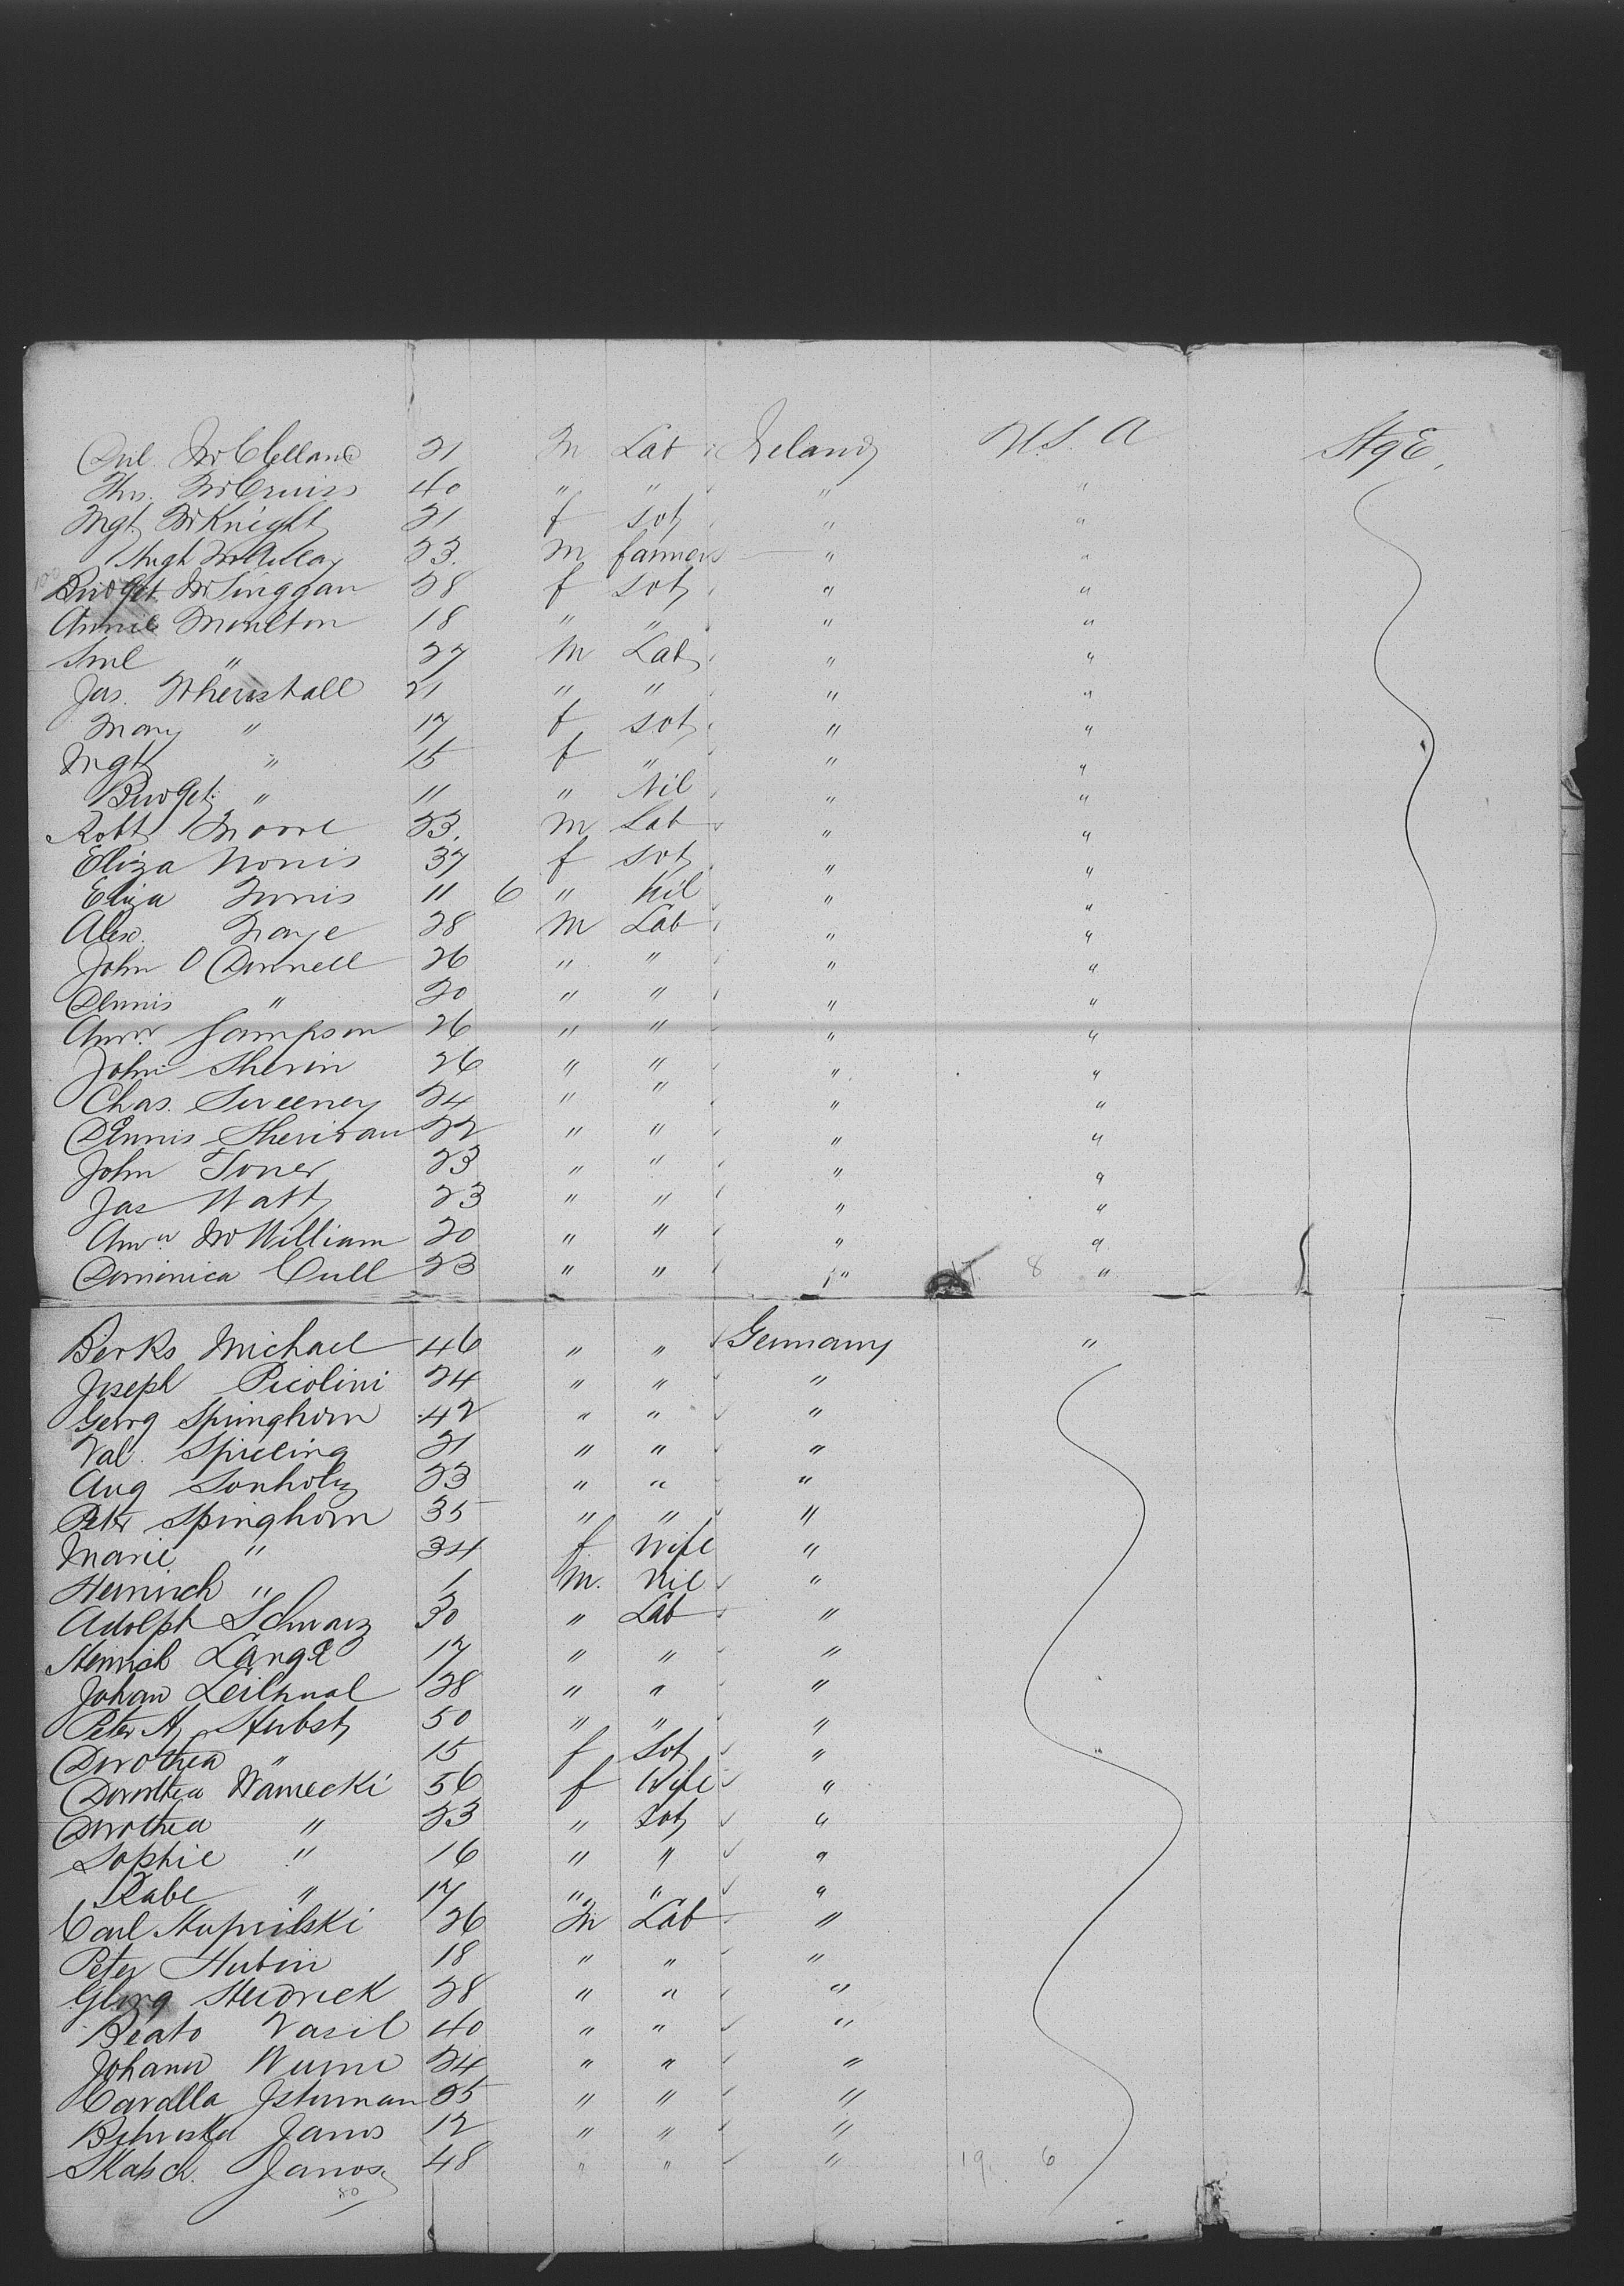 Danl. McClelland 21 M Lab Ireland U.S.A StgE,
Thos. McCruiss 40 " " " "
Mgt McKnight 21 f Spt " "
Hugh McAuley 23. M farmer " "
Bridget McSinggan 28 f Spt " "
Annie Moulton 18 " " " "
Saml " 27 M Lab " "
Jas. 21 " " " "
Mary " 17 f Spt " "
Mgt " 15 f " " "
Bridget " 11 " Nil " "
Robt Moore 23. M Lab " "
Eliza Norris 37 f Spt " "
Eliza Norris 11 6 " Nil " "
Alex. 28 M Lab " "
John O Donnell 26 " " " "
Dennis " 20 " " " "
Andw Sampson 26 " " " "
John Sherin 26 " " " "
Chas. Sweeney 24 " " " "
Dennis Sheridan 22 " " " "
John Toner 23 " " " "
Jas Watt 23 " " " "
Andw McWilliam 20 " " " "
Dominica Cull 23 " " " 17. 8 "
Berks Michael 46 " " Germany "
Joseph Picolini 24 " " "
Georg Springhorn 42 " " "
Val. Spieling 21 " " "
Aug Sonholz 23 " " "
Peter Springhorn 35 " " "
Marie " 34 f Wife "
Heinrich " 1 M. Nil "
Adolph Schwarz 30 " Lab "
Heinrich Lange 17 " " "
Johan 28 " " "
Peter H. Hubst 50 " " "
Dorothea " 15 f Spt "
Dorothea Warnecki 56 f Wife "
Dorothea " 23 " Spt "
Sophie " 16 " " "
Rabe " 17 " " "
Carl 26 M Lab "
Peter Hubin 18 " " "
Georg Heidrick 28 " " "
Beato Vasil 40 " " "
Johann 24 " " "
Caralla 25 " " "
Janos 12 " " "
Skabch. Janos 48 " " " 19. 6
80